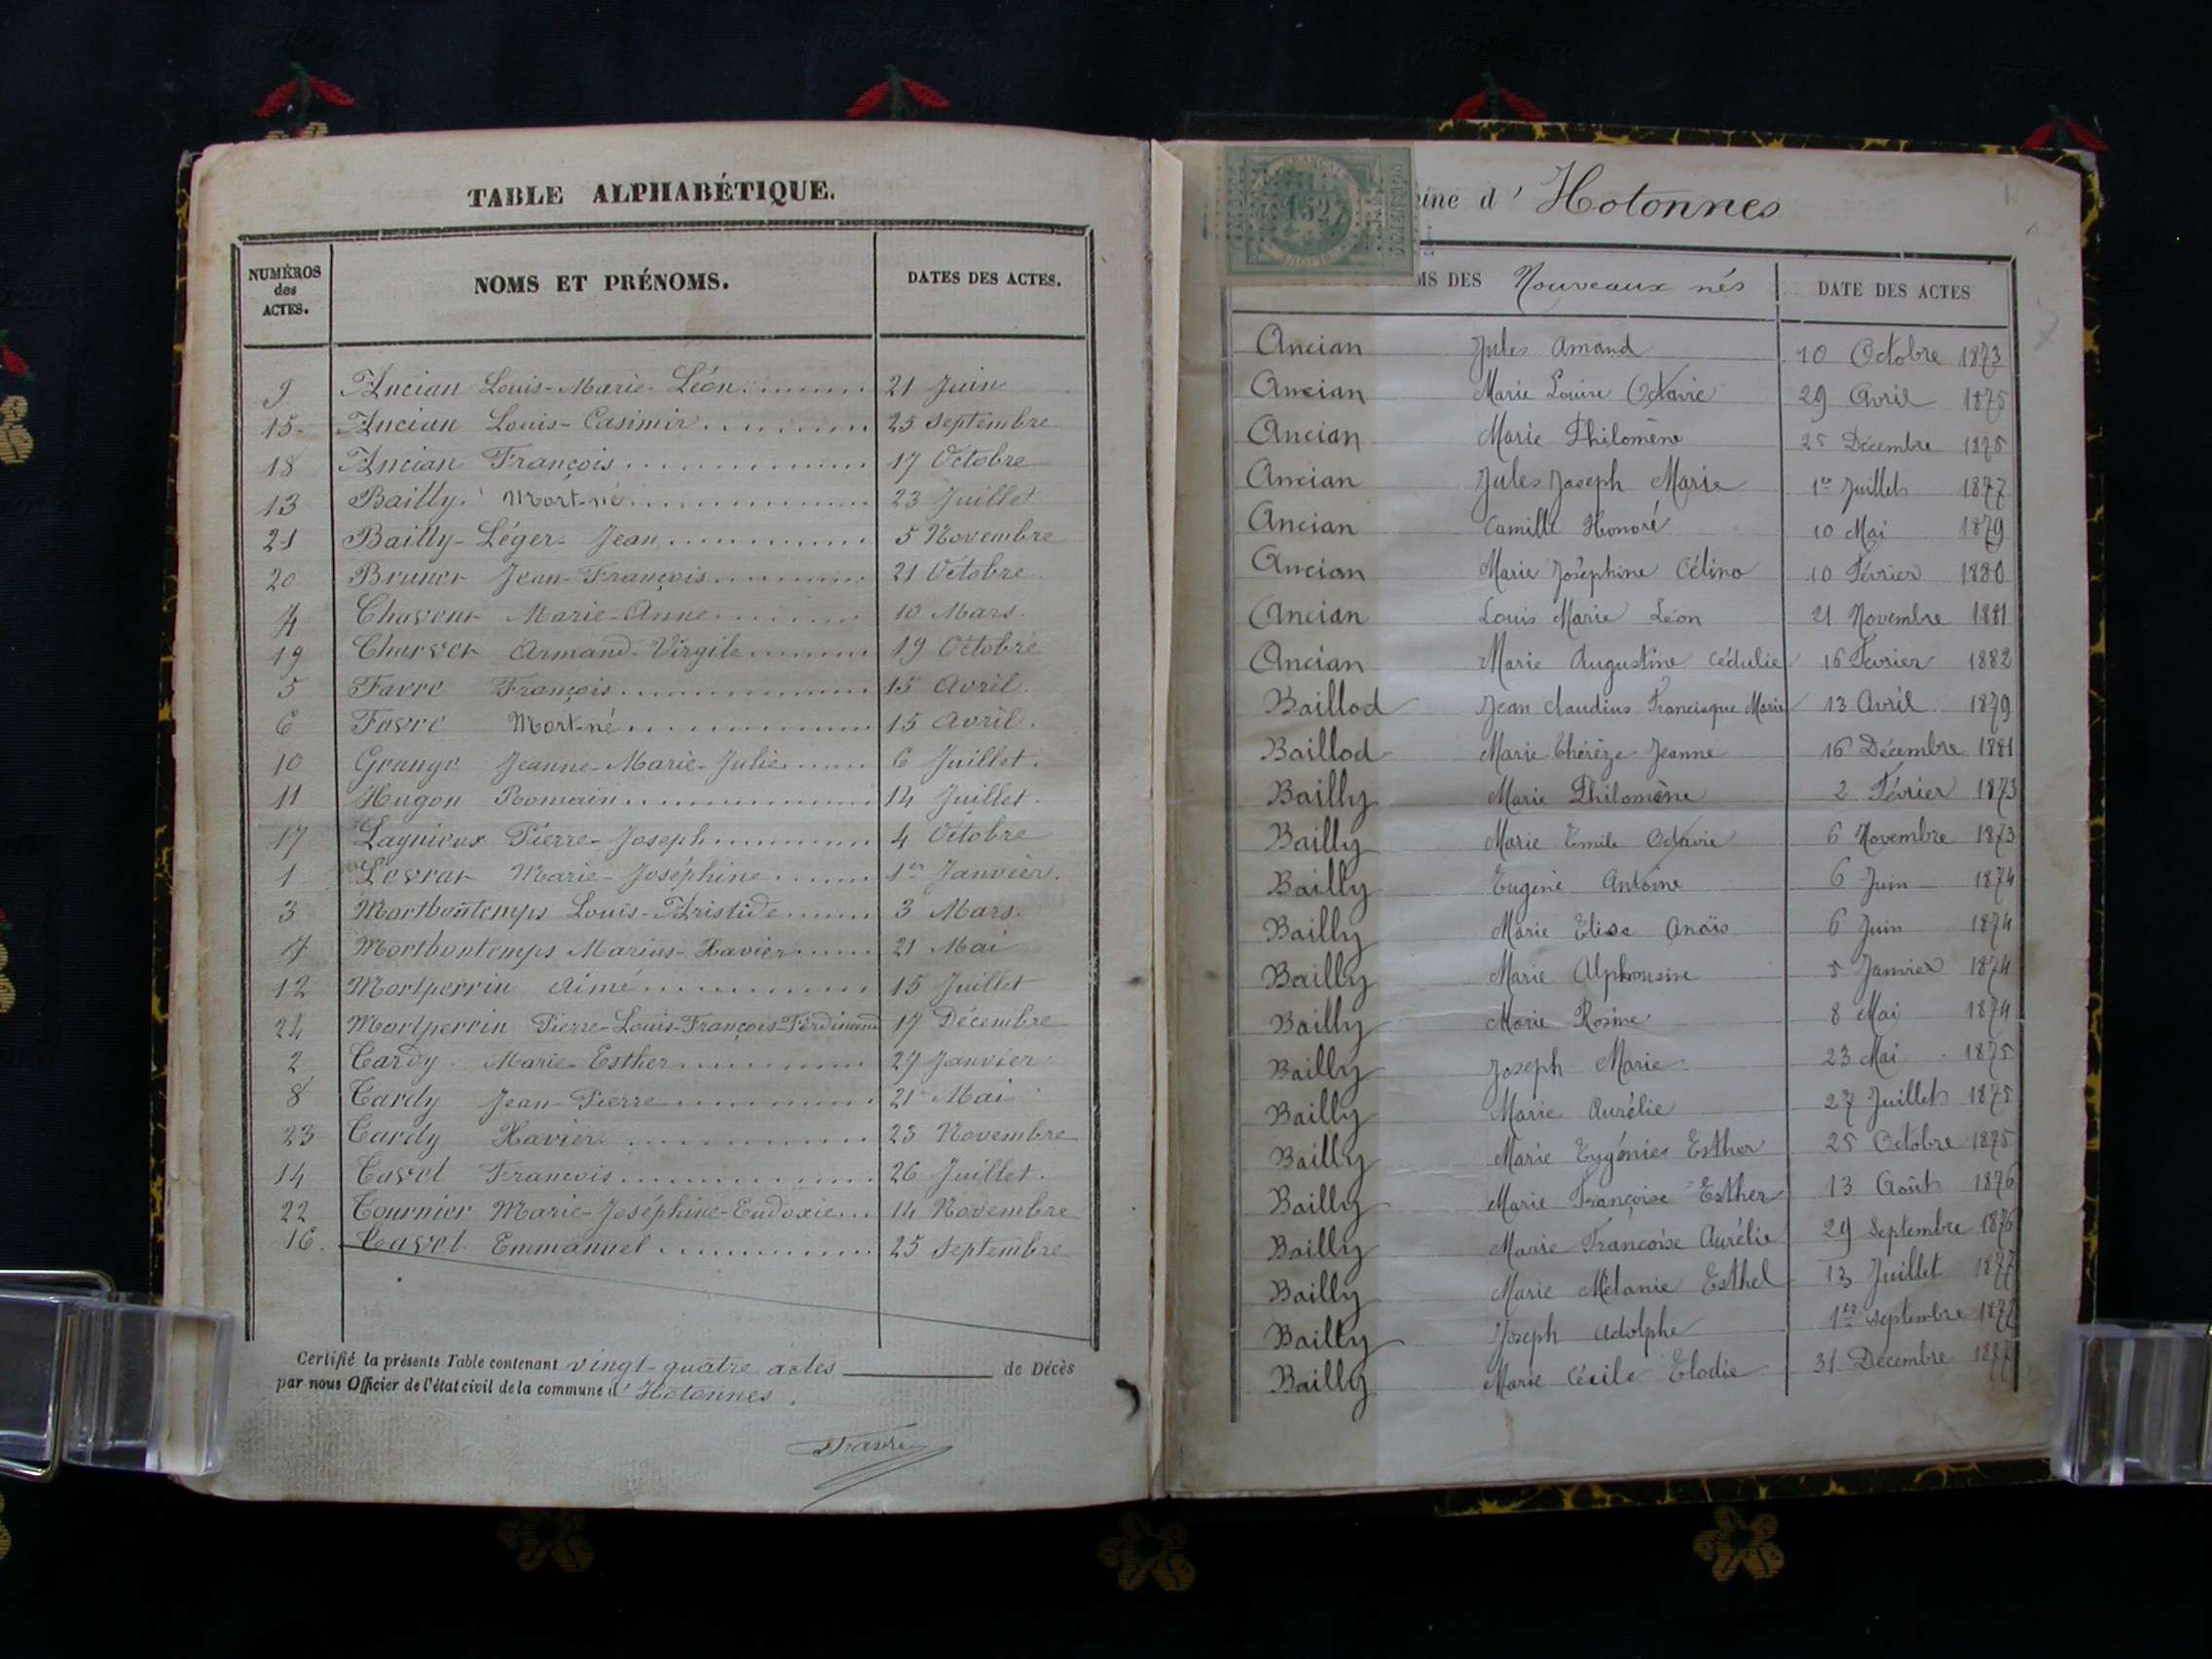 TABLE ALPHABÉTIQUE.
NUMÉROS des ACTES. NOMS ET PRÉNOMS. DATES DES ACTES.
9 Ancian Louis-Marie-Léon 21 Juin
15 Ancian Louis-Casimir 25 Septembre
18 Ancian François 17 Octobre
13 Bailly Mort-né 23 Juillet
21 Bailly-Léger-Jean 5 Novembre
20 Jean-François 21 Octobre
4 Marie-Anne 10 Mars.
19 Armand-Virgile 19 Octobre
5 Favre François 15 Avril.
6 Favre Mort-né 15 Avril.
10 Grange Jeanne-Marie-Julie 6 Juillet.
11 Hugon Romain 14 Juillet.
17 Lagnieux Pierre-Joseph 4 Octobre
1 Levrat Marie-Joséphine 1er Janvier.
3 Montbontemps Louis-Aristide 3 Mars.
7 Montbontemps Marius-Xavier 21 Mai
12 Montperrin Aimé 15 Juillet
24 Montperrin Pierre-Louis-François-Ferdinand 17 Décembre
2 Tardy Marie-Esther 27 Janvier
8 Tardy Jean-Pierre 21 Mai
23 Tardy Xavier 23 Novembre
14 Tavel François 26 Juillet.
22 Tournier Marie-Joséphine-Eudoxie 14 Novembre
16. Tavel Emmanuel 25 Septembre
Certifié la présente Table contenant vingt-quatre actes de Décès
par nous Officier de l'état civil de la commune d'Hotonnes.
Favre
1527
d'Hotonnes
DES Nouveaux nés DATE DES ACTES
Ancian Jules Amand 10 Octobre 1873
Ancian Marie Louise Octavie 29 Avril 1875
Ancian Marie Philomène 25 Décembre 1875
Ancian Jules Joseph Marie 1er Juillet 1877
Ancian Camille Honoré 10 Mai 1879
Ancian Marie Joséphine Célina 10 Février 1880
Ancian Louis Marie Léon 21 Novembre 1881
Ancian Marie Augustine Cédulie 16 Février 1882
Baillod Jean Claudius Francisque Marie 13 Avril 1879
Baillod Marie Thérèze Jeanne 16 Décembre 1881
Bailly Marie Philomène 2 Février 1873
Bailly Marie Emile Octavie 6 Novembre 1873
Bailly Eugène Antoine 6 Juin 1874
Bailly Marie Elisa Anaïs 6 Juin 1874
Bailly Marie Alphonsine 5 Janvier 1874
Bailly Marie Rosine 8 Mai 1874
Bailly Joseph Marie 23 Mai 1875
Bailly Marie Aurélie 27 Juillet 1875
Bailly Marie Eugénie Esther 25 Octobre 1875
Bailly Marie Françoise Esther 13 Août 1876
Bailly Marie Françoise Aurélie 29 Septembre 1876
Bailly Marie Mélanie Esthel 13 Juillet 1877
Bailly Joseph Adolphe 1er Septembre 1877
Bailly Marie Cécile Elodie 31 Décembre 1877